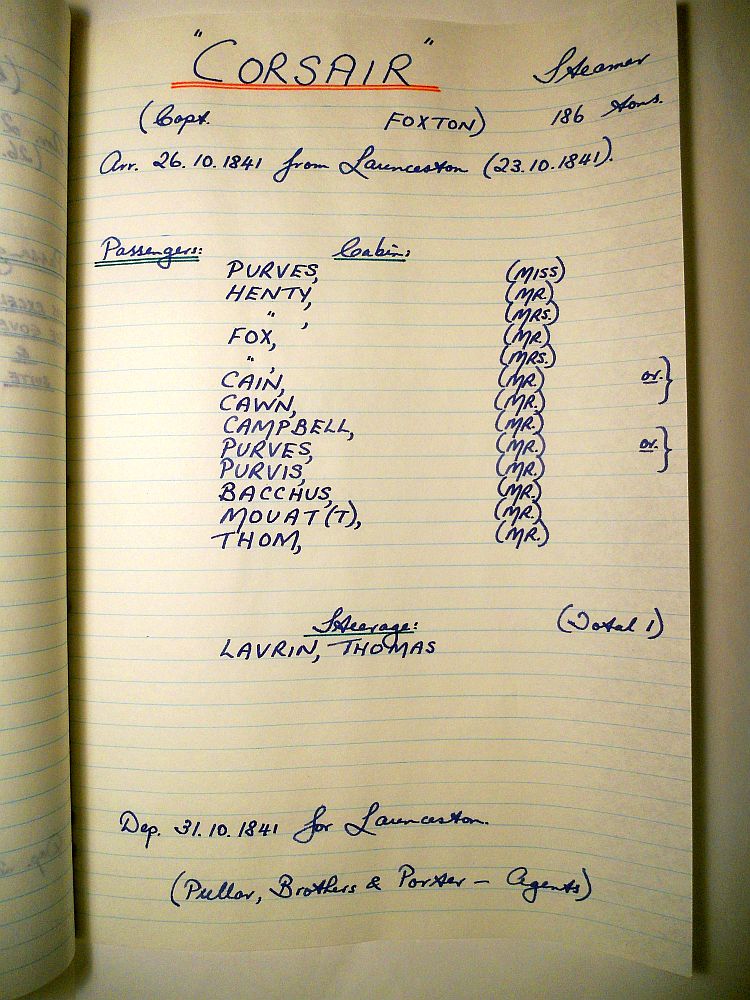 "CORSAIR" Steamer
(Capt. FOXTON) 186 tons.
Arr. 26.10.1841 from Launceston (23.10.1841).
Passengers: Cabin:
PURVES, (MISS)
HENTY, (MR.)
" , (MRS.)
FOX, (MR.)
" , (MRS.)
CAIN, (MR.) or. }
CAWN, (MR.)
CAMPBELL, (MR.)
PURVES, (MR.) or. }
PURVIS, (MR.)
BACCHUS, (MR.)
MOUAT(T), (MR.)
THOM, (MR.)
Steerage: (Total 1)
LAVRIN, THOMAS
Dep. 31.10.1841 for Launceston.
(Pullar, Brothers & Porter - Agents)